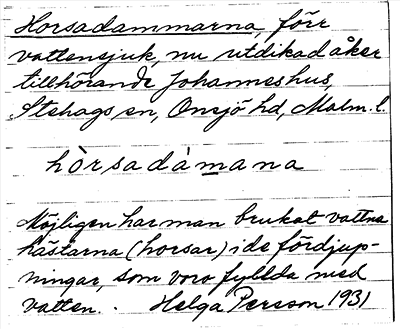 Horsadammarna, förr
vattensjuk, nu utdikad åker
tillhörande Johanneshus,
Stehags sn, Onsjö hd, Malm. l.
hòrsadàmana
Möjligen har man brukat vattna
hästarna (horsar) i de fördjup-
ningar, som voro fyllda med
vatten. . Helga Persson 1931